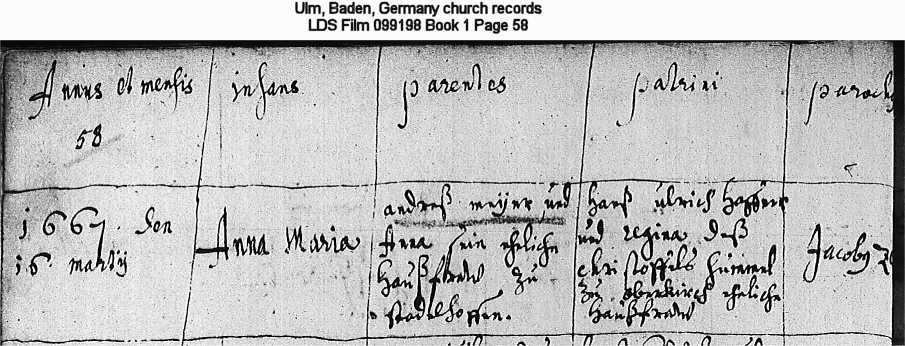 Ulm, Baden, Germany church records
LDS Film 099198 Book 1 Page 58
Annus et mensis
58
infans
parentes
patrini
paroch
1667. den
16. martij
Anna Maria
andreß meyer und
Anna sein eheliche
haußfraw zu
stadelhoffen.
Hanß ulrich
und regina deß
christoffels hummel
zu oberkirch eheliche
haußfraw
Jacoby